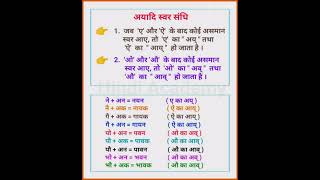 अयादि स्वर संधि
👉 1. जब 'ए' और 'ऐ' के बाद कोई असमान
स्वर आए, तो 'ए' का " अय् " तथा
'ऐ' का " आय् " हो जाता है ।
👉 2. 'ओ' और 'औ' के बाद कोई असमान
स्वर आए, तो 'ओ' का " अव् " तथा
'औ' का " आव् " हो जाता है ।
ने + अन = नयन ( ए का अय् )
नै + अक = नायक ( ऐ का आय् )
गै + अक = गायक ( ऐ का आय् )
गै + अन = गायन ( ऐ का आय् )
पो + अन = पवन ( ओ का अव् )
पौ + अक = पावक ( औ का आव् )
पौ + अन = पावन ( औ का आव् )
भो + अन = भवन ( ओ का अव् )
भौ + अक = भावक ( औ का आव् )